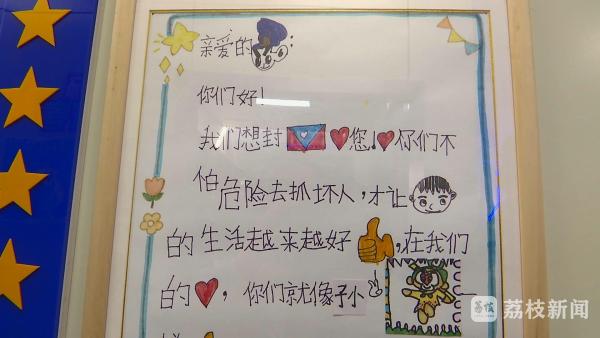 亲爱的:
你们好!
我们想封您!你们不
怕危险去抓坏人,才让
的生活越来越好,在我们
的,你们就像子小
荔枝新闻